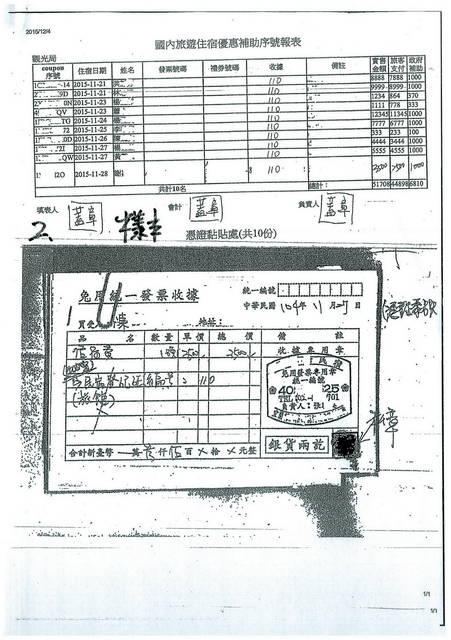 2015/12/4
國內旅遊住宿優惠補助序號報表
觀光局
coupon序號 住宿日期 姓名 發票號碼 禮券號碼 收據 備註 實售金額 旅客支付 政府補助
14 2015-11-21 110 8888 7888 1000
9D 2015-11-21 110 9999 8999 1000
0N 2015-11-23 110 1234 864 370
QV 2015-11-23 110 1111 778 333
TG 2015-11-24 110 12345 11345 1000
72 2015-11-25 110 7777 6777 1000
0D 2015-11-26 110 333 233 100
2I 2015-11-27 110 4444 3444 1000
QW 2015-11-27 黃 110 5555 4555 1000
2O 2015-11-28 謝 110 3500 2500 1000
共計10名 總計: 51708 44898 6810
填表人 蓋章 會計 蓋章 負責人 蓋章
2. 樣本
憑證黏貼處(共10份)
免用統一發票收據
統一編號
中華民國 104年 11月 27日
買受 陳 地址:
品名 數量 單價 總價 備註
住宿費 2500 收據專用章
民宿登記証編號: 110
(旅館)
免用發票專用章
統一編號
40 25
TEL
701
負責人:張
銀貨兩訖
合計新臺幣 萬 貳仟伍百 拾 元整
章
1/1
1/1